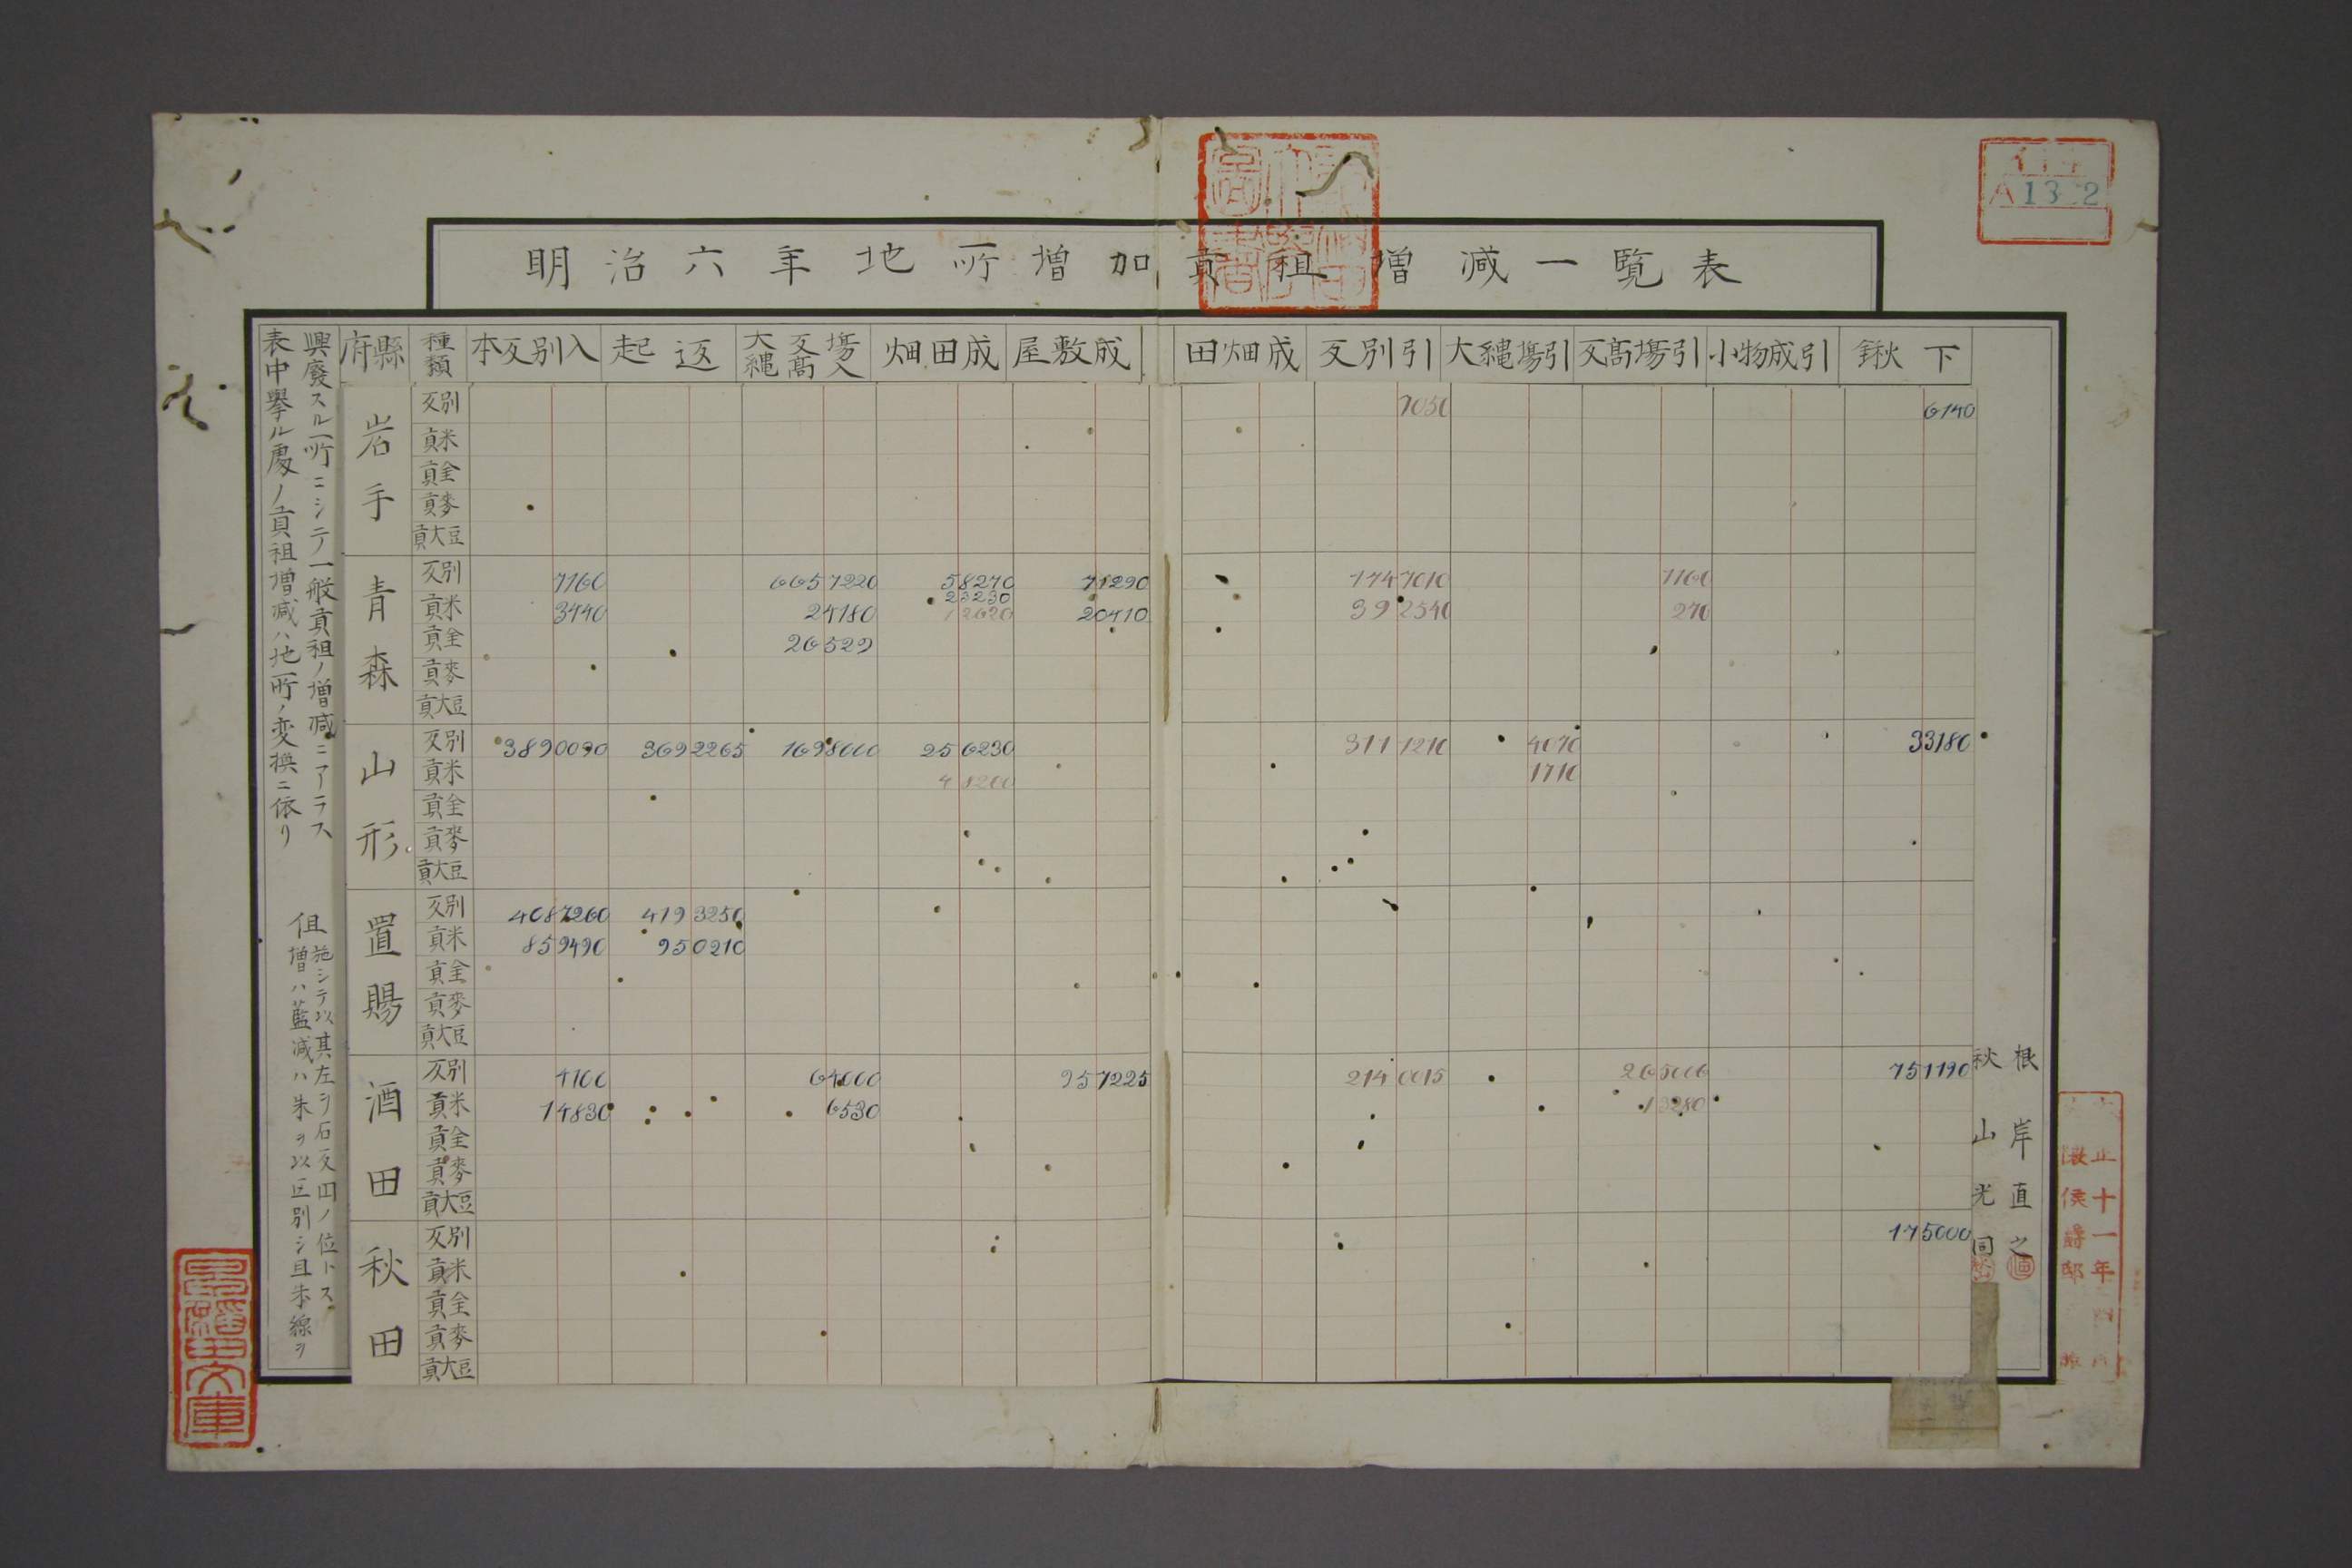 明治六年地所増加貢租増減一覧表
A13 2
表中挙ル処ノ貢租増減ハ地所ノ変換ニ依リ
興廃スル所ニシテ一般貢租ノ増減ニアラス
但
増ハ藍減ハ朱ヲ以区別シ且朱線ヲ
施シテ以其左ヲ石反円ノ位トス
府縣 種類 本反別入 起返 大縄反高場入 畑田成 屋敷成 田畑成 反別引 大縄場引 反高場引 小物成引 鍬下
岩手
反別 7050 6140
貢米
貢金
貢麥
貢大豆
青森
反別 7160 6657220 58270 71290 1747010 7160
貢米 3440 24180 23230 12620 20410 392540 270
貢金 26529
貢麥
貢大豆
山形
反別 3890090 3692265 1698000 256230 3111210 4070 33180
貢米 48200 1710
貢金
貢麥
貢大豆
置賜
反別 4087260 4193250
貢米 859490 950210
貢金
貢麥
貢大豆
酒田
反別 4100 64000 957225 2140015 265006 751190
貢米 14830 6530 13280
貢金
貢麥
貢大豆
秋田
反別 175000
貢米
貢金
貢麥
貢大豆
根岸直之
秋山光